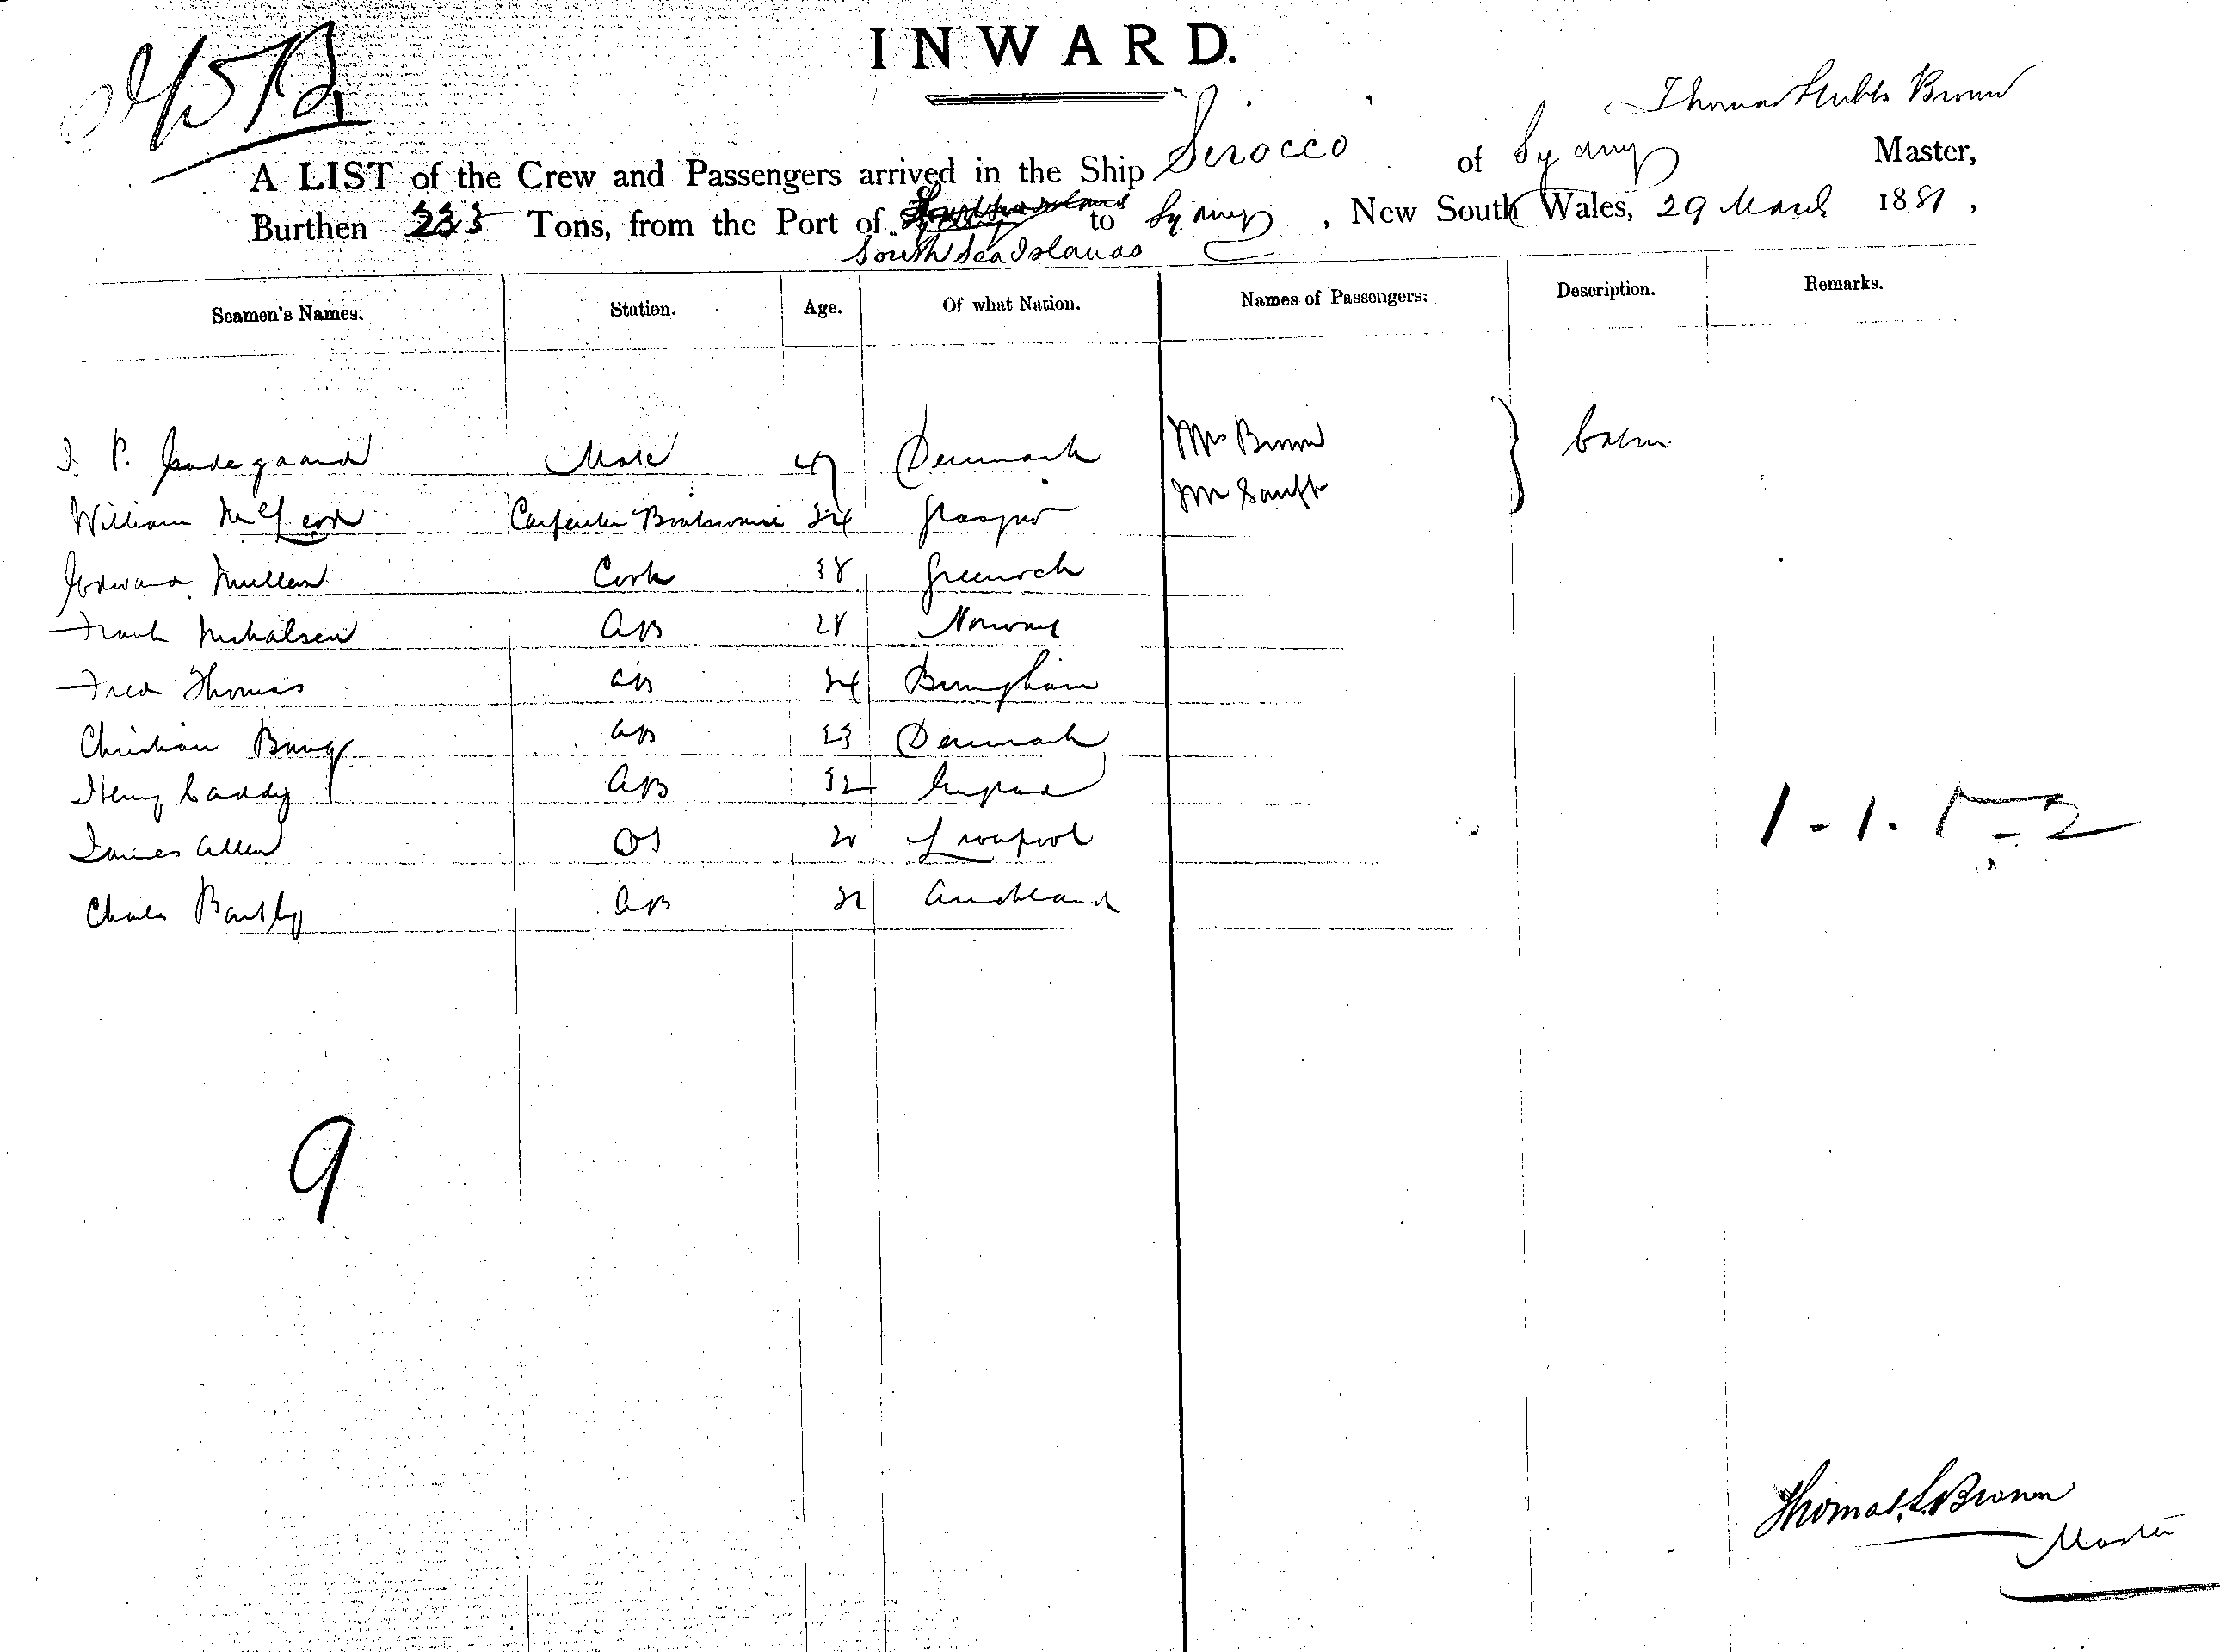 INWARD.
Thomas Stubbs Brown
A LIST of the Crew and Passengers arrived in the Ship Sirocco of Sydney Master,
Burthen 233 Tons, from the Port of to Sydney, New South Wales, 29 March 1881,
South Sea Islands
Seamen's Names. Station. Age. Of what Nation. Names of Passengers. Description. Remarks.
J. P. Mate 47 Denmark Mrs Brown } Cabin
William McLeod Carpenter Boatswain 24 Glasgow Mr
Edward Mullen Cook 38 Greenock
Frank AB 28 Norway
Fred Thomas AB 24 Birmingham
Christian AB 23 Denmark
Henry Caddy AB 32 England
James Allen OS 20 Liverpool
Charles AB Auckland
9
Thomas S. Brown
Master